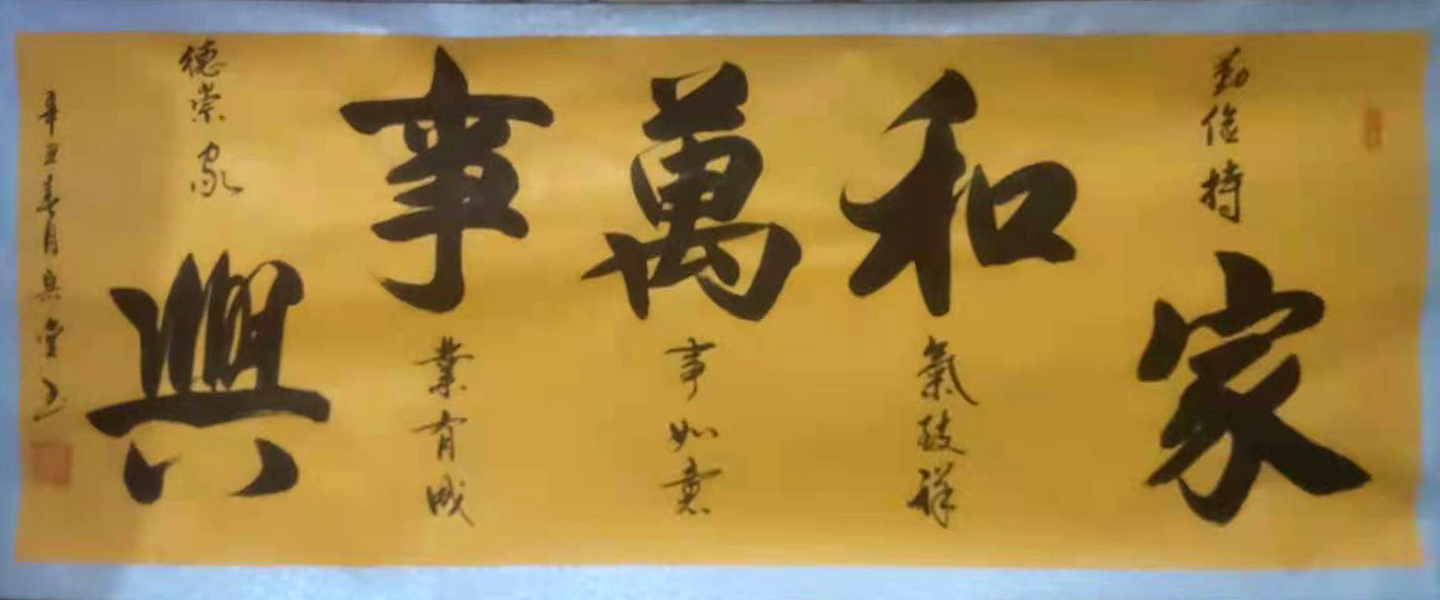 勤儉持家
和氣致祥
萬事如意
事業有成
德崇家興
辛丑春月